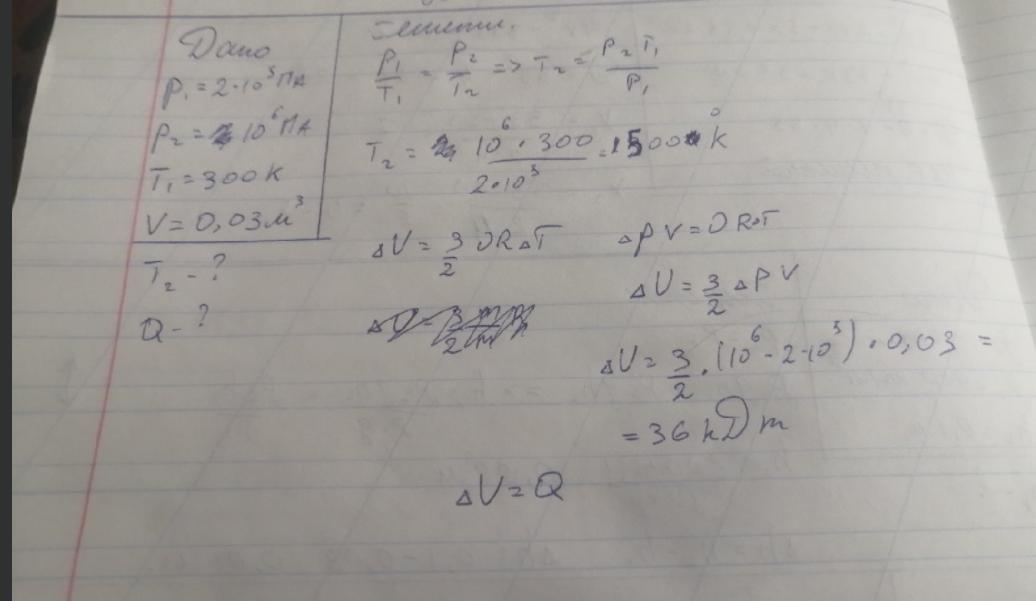 Дано
P₁ = 2·10⁵ Па
P₂ = 10⁶ Па
T₁ = 300 K
V = 0,03 м³
T₂ - ?
Q - ?
Решение.
P₁/T₁ = P₂/T₂ => T₂ = P₂ T₁/P₁
T₂ = 10⁶ · 300/2·10⁵ = 1500 K
ΔU = 3/2 υRΔT
ΔP V = υRΔT
ΔU = 3/2 ΔP V
ΔU = 3/2 · (10⁶ - 2·10⁵) · 0,03 =
= 36 кДж
ΔU = Q